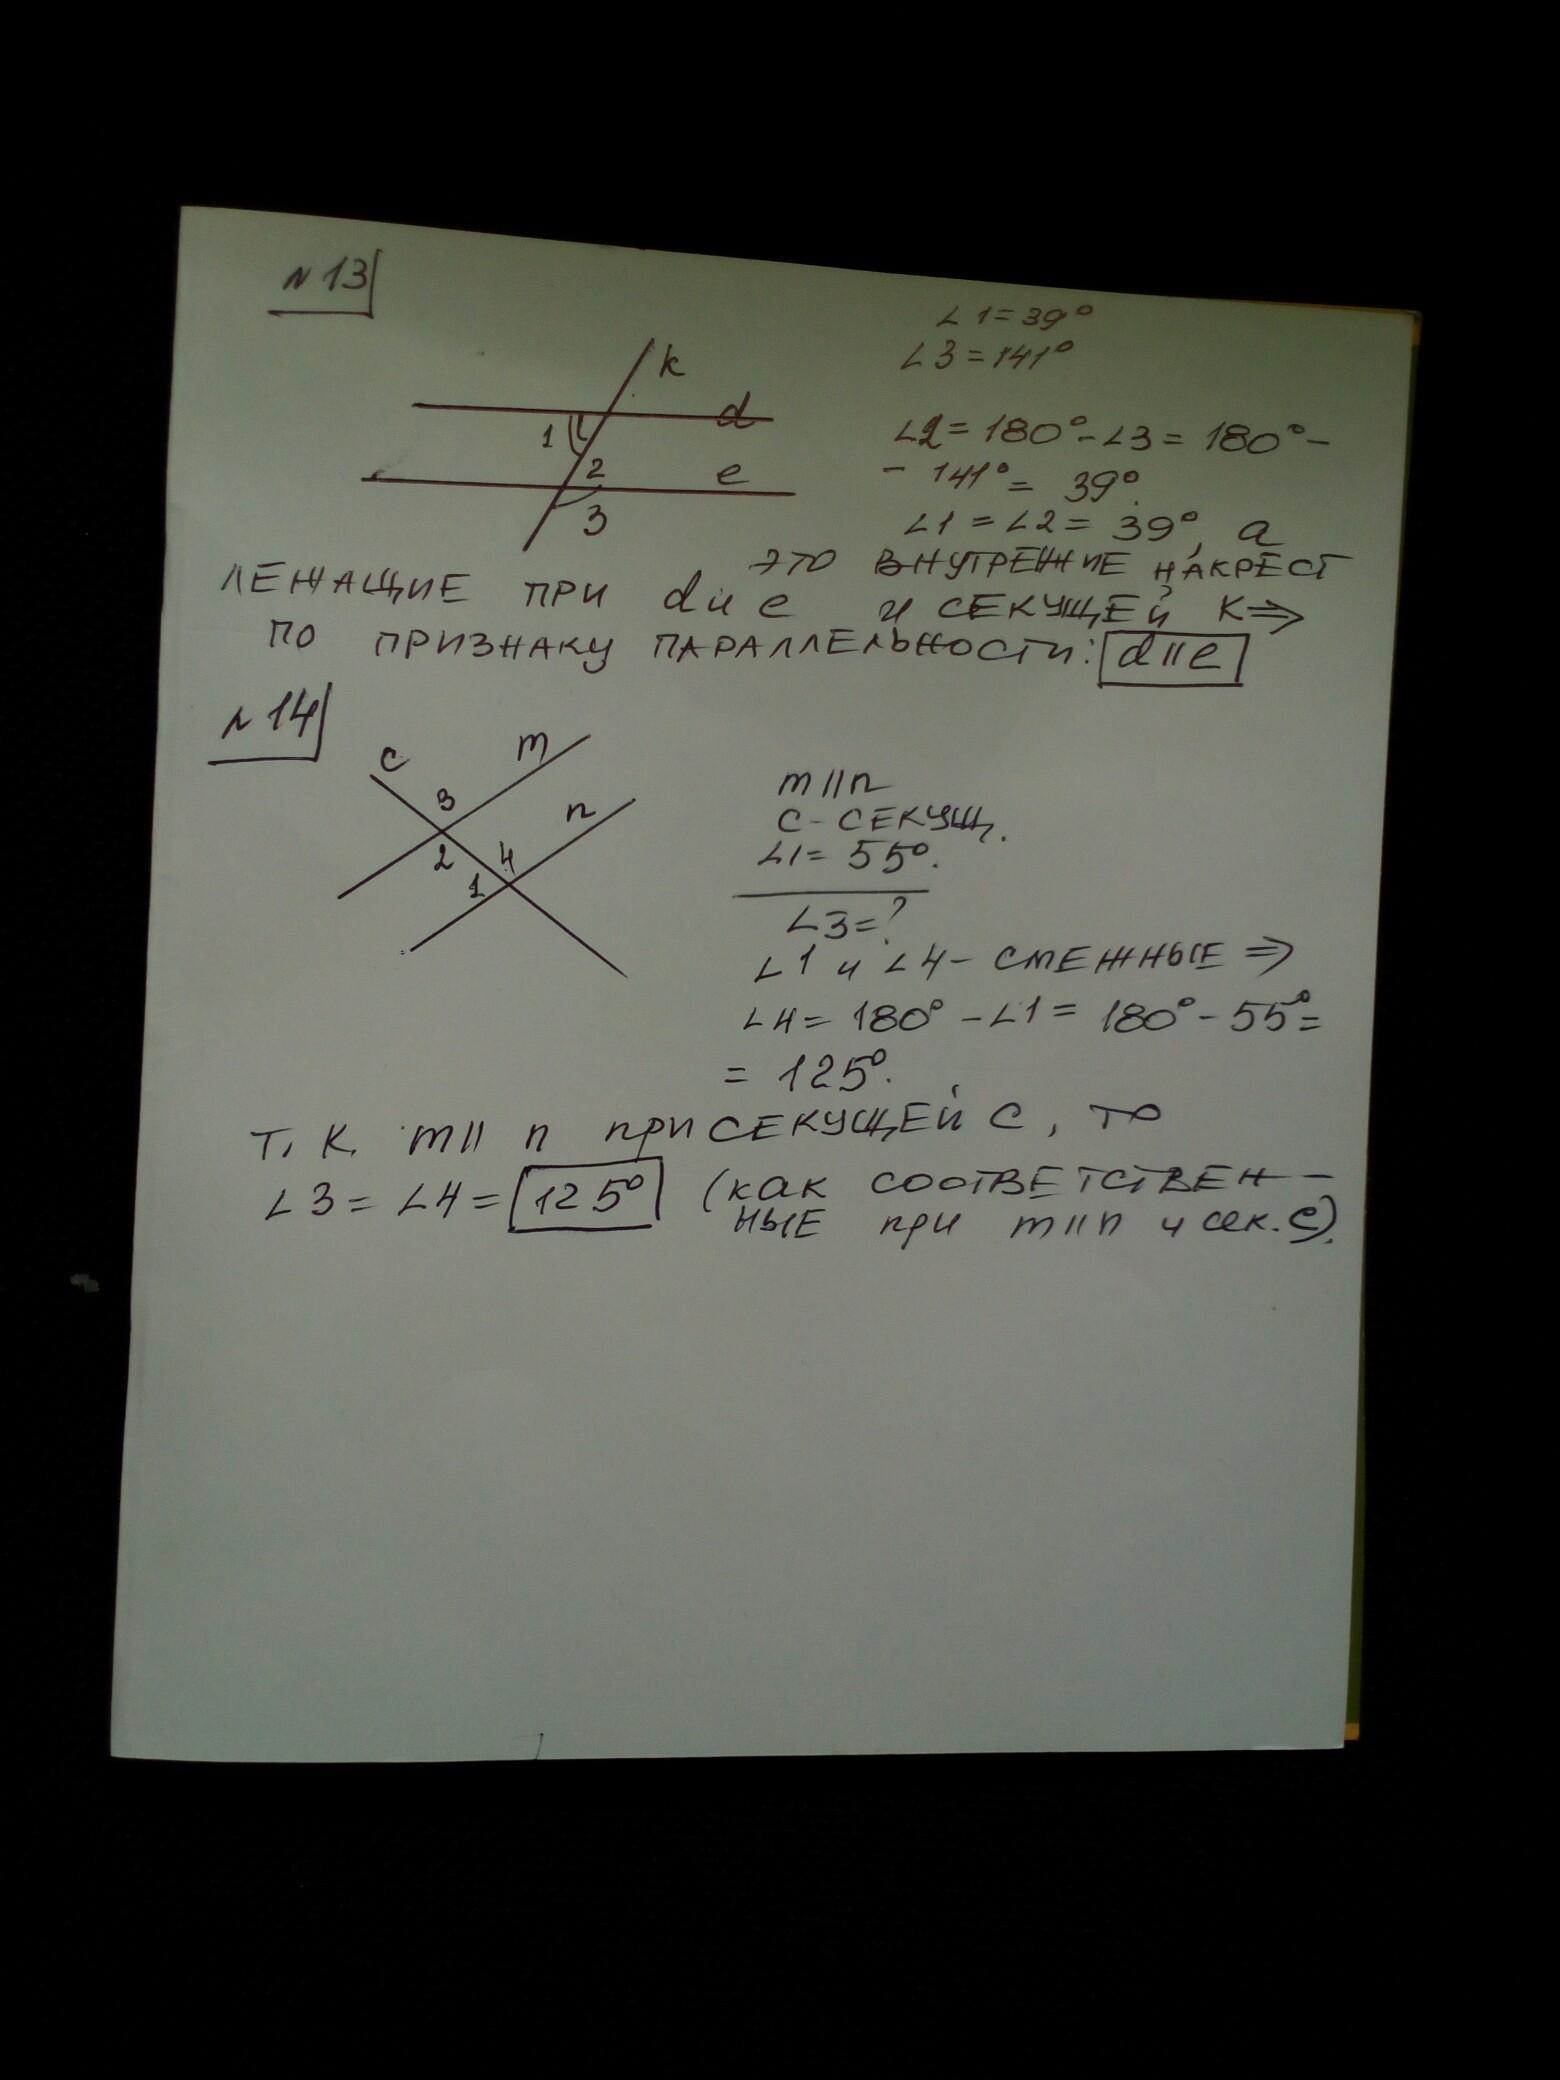 №13
∠1=39°
∠3=141°
k
d
1
2
e
3
∠2=180°-∠3=180°-
- 141°= 39°.
∠1=∠2=39°, а
это внутренние накрест
лежащие при d и e и секущей k⇒
по признаку параллельности: d||e
№14
c
m
3
n
2
4
1
m||n
c- секущ.
∠1= 55°.
∠3=?
∠1 и ∠4- смежные ⇒
∠4= 180° -∠1= 180°- 55°=
= 125°.
Т.К. m|| n при секущей c, то
∠3= ∠4= 125° (как соответствен-
ные при m||n и сек. c).